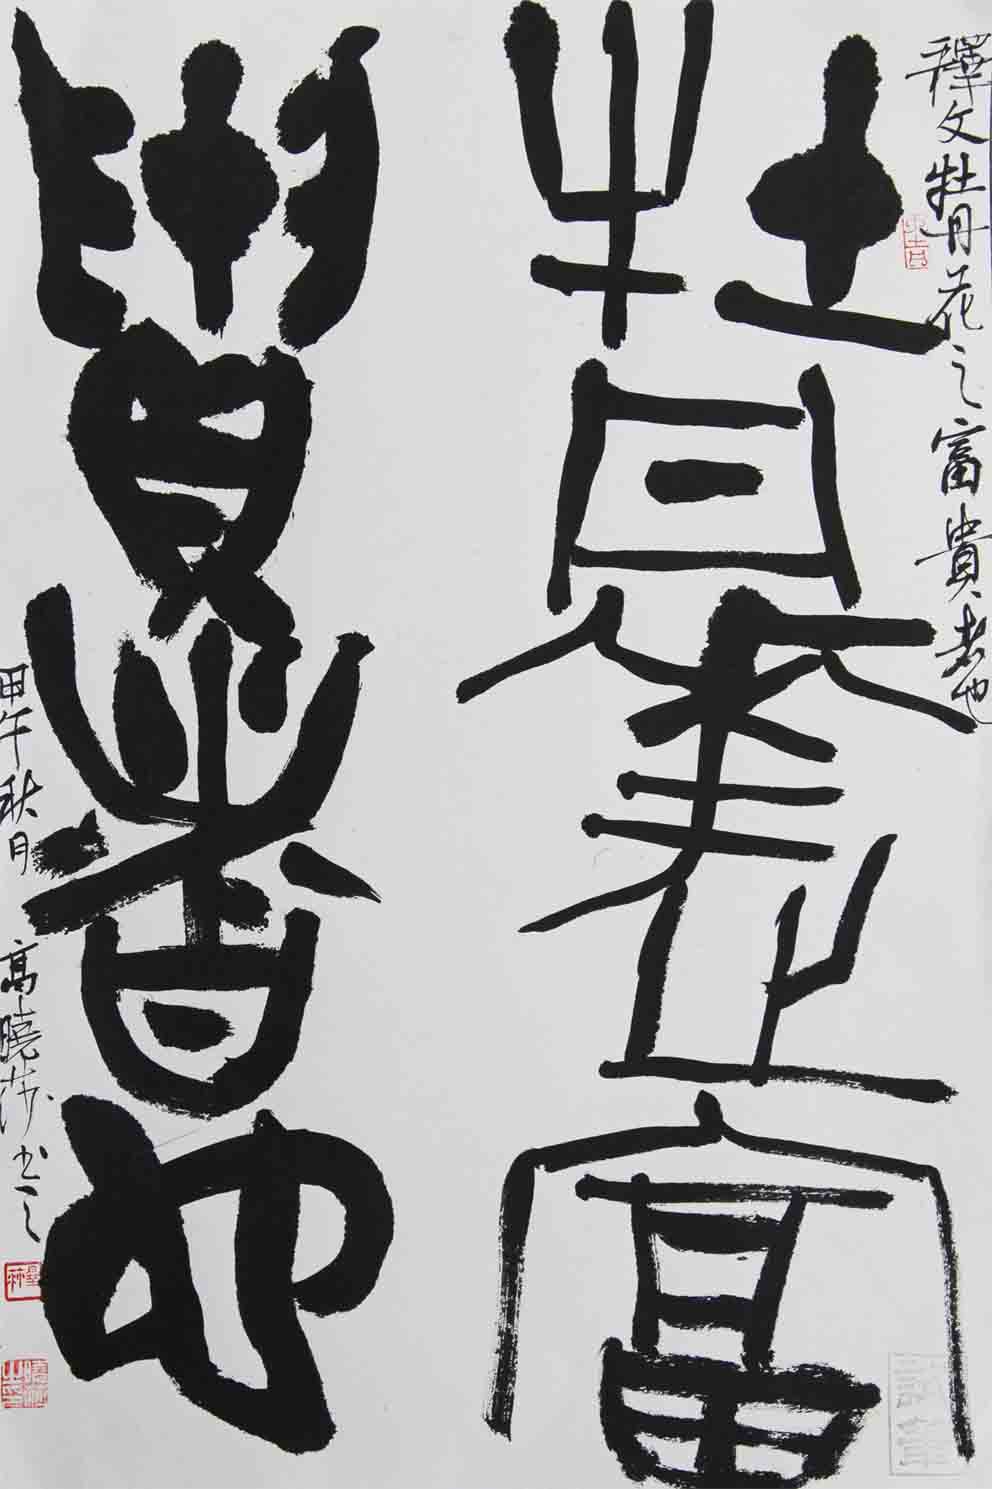 釋文牡丹花之富貴者也
牡丹花之富
貴者也
甲午秋月 高曉莎書之